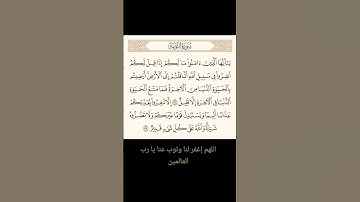 سُورَةُ التَّوْبَةِ
يَٰٓأَيُّهَا ٱلَّذِينَ ءَامَنُوا۟ مَا لَكُمْ إِذَا قِيلَ لَكُمُ
ٱنفِرُوا۟ فِى سَبِيلِ ٱللَّهِ ٱثَّاقَلْتُمْ إِلَى ٱلْأَرْضِ أَرَضِيتُم
بِٱلْحَيَوٰةِ ٱلدُّنْيَا مِنَ ٱلْءَاخِرَةِ فَمَا مَتَٰعُ ٱلْحَيَوٰةِ
ٱلدُّنْيَا فِى ٱلْءَاخِرَةِ إِلَّا قَلِيلٌ ٣٨ إِلَّا تَنفِرُوا۟ يُعَذِّبْكُمْ
عَذَابًا أَلِيمًا وَيَسْتَبْدِلْ قَوْمًا غَيْرَكُمْ وَلَا تَضُرُّوهُ
شَيْـًٔا وَٱللَّهُ عَلَىٰ كُلِّ شَىْءٍ قَدِيرٌ ٣٩
اللهم إغفر لنا وتوب عنا يا رب
العالمين